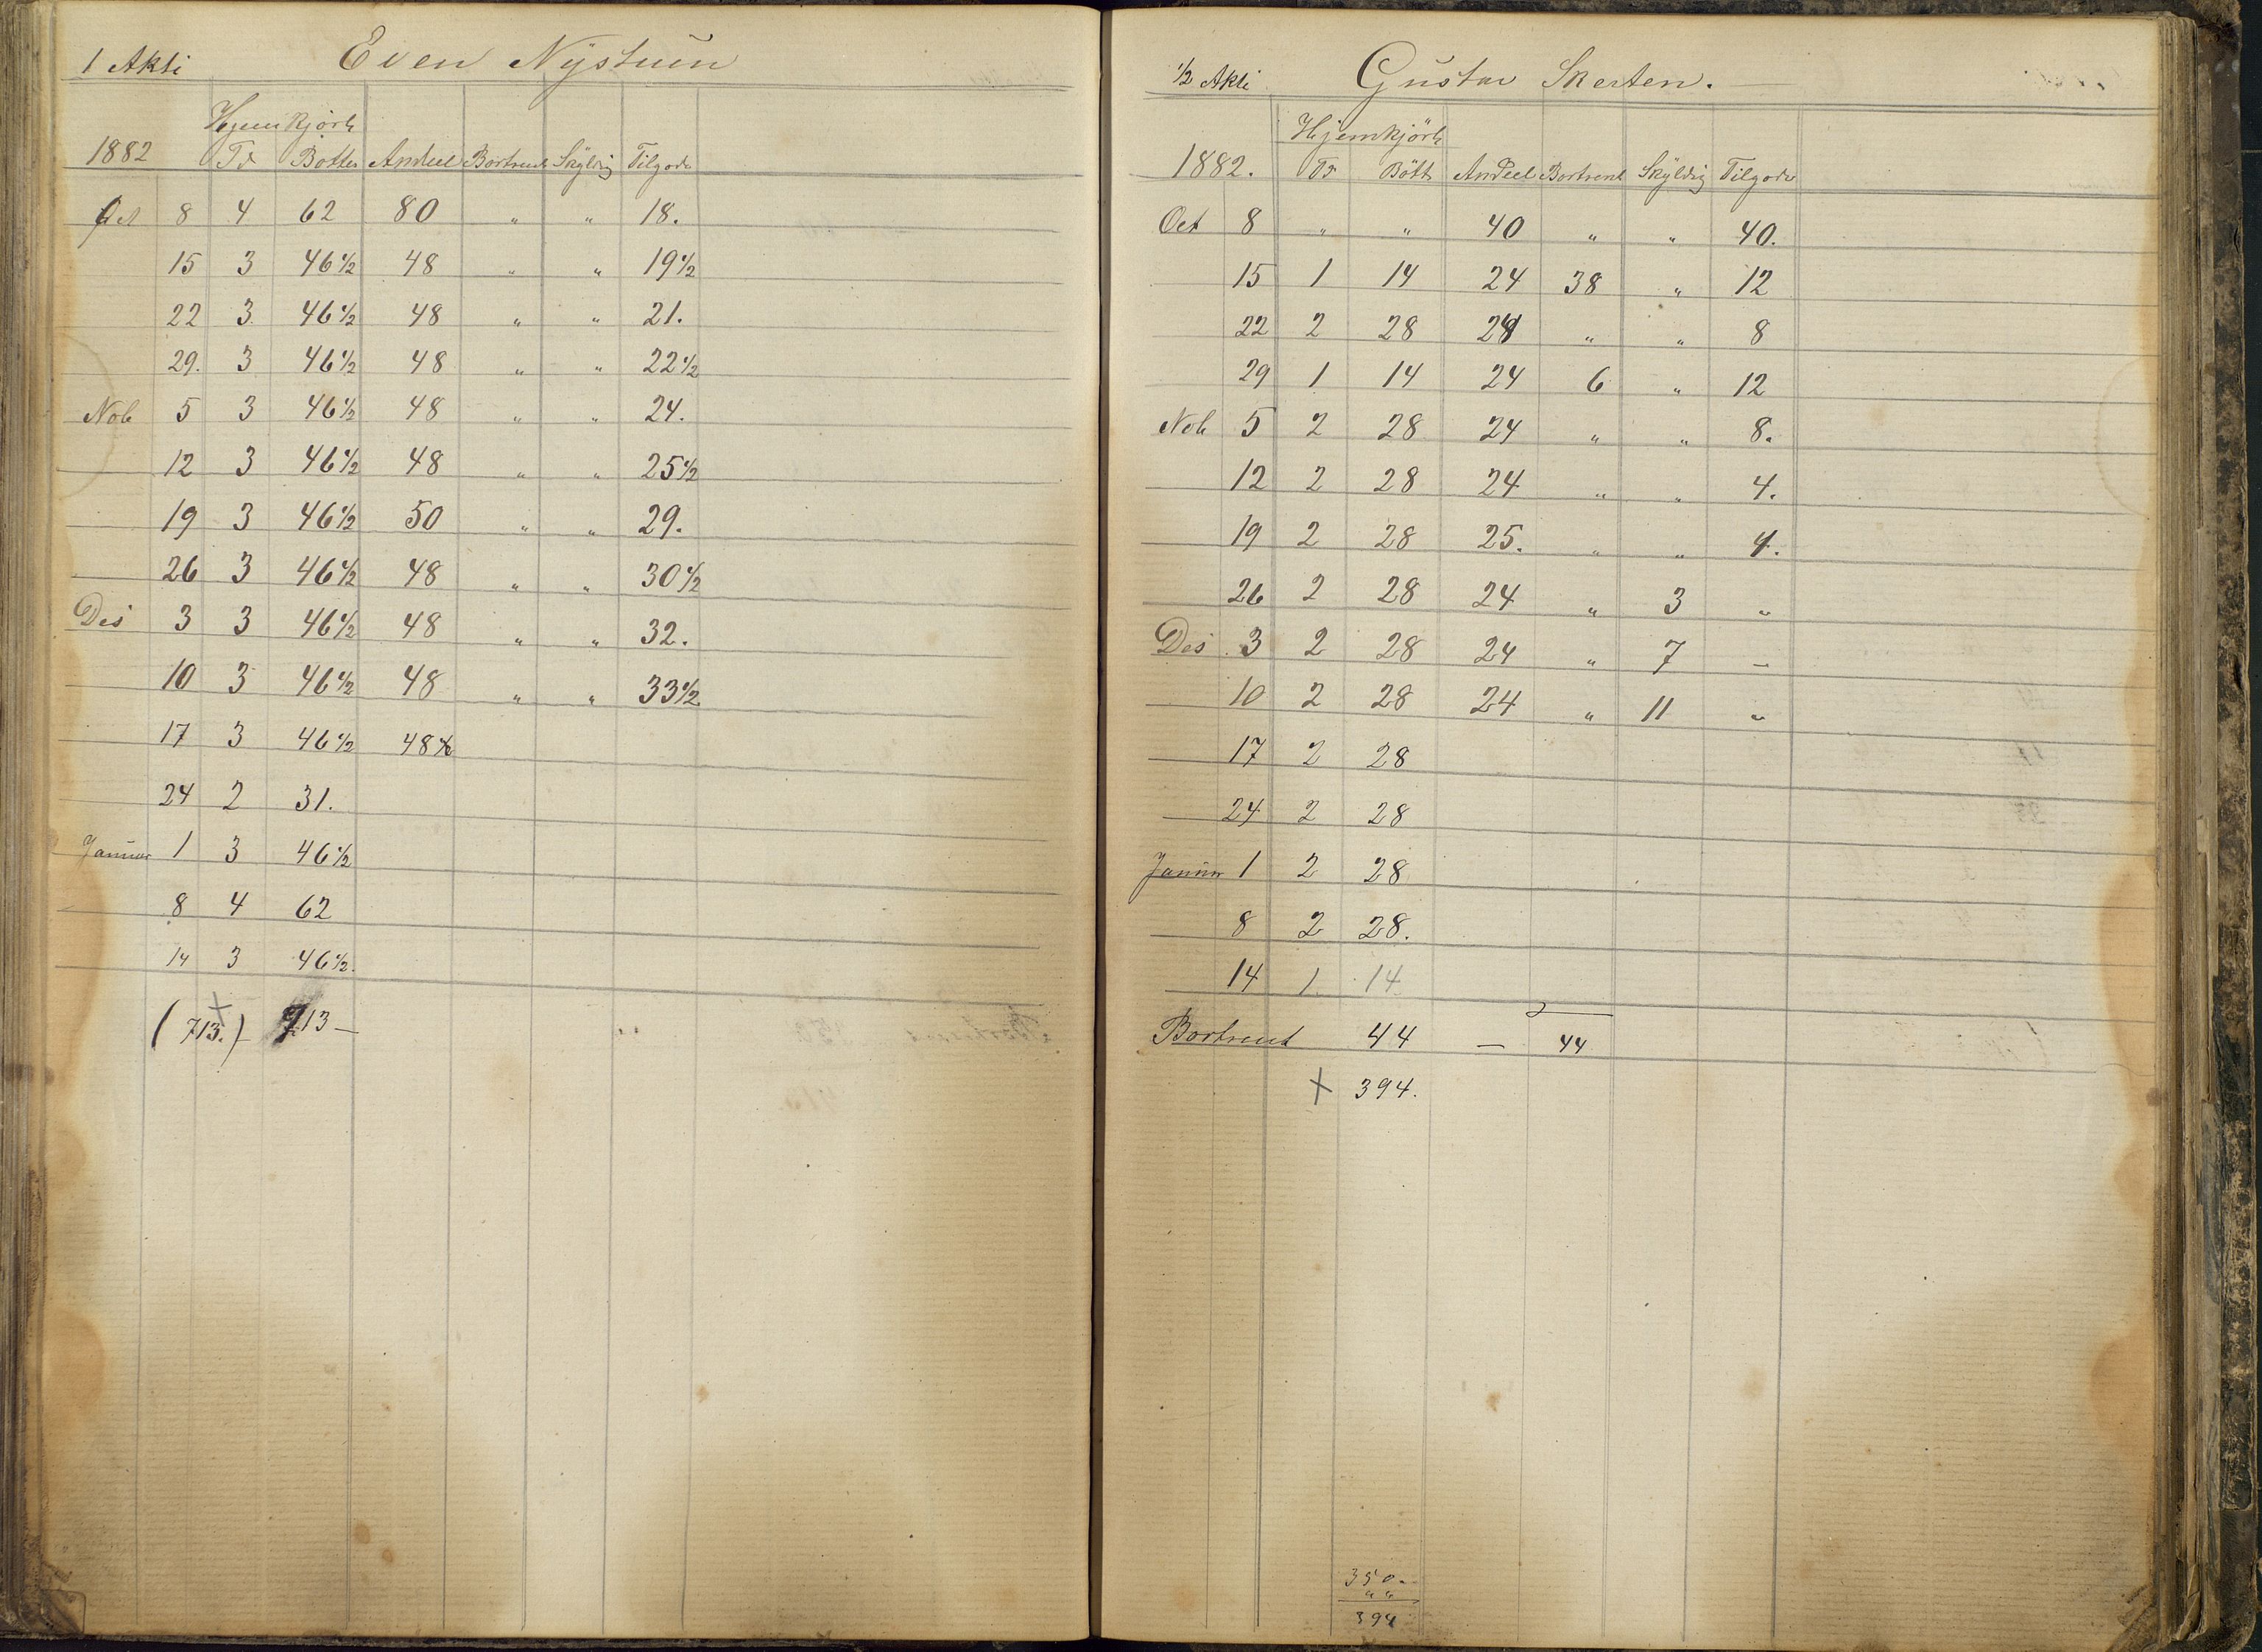 1 Akti Even Nÿstuen
Hjemkjørt
1882 Td Bøtter Andeel Bortrent Skÿldig Tilgode
Oct 8 4 62 80 " " 18.
15 3 46½ 48 " " 19½
22 3 46½ 48 " " 21.
29. 3 46½ 48 " " 22½
Nob 5 3 46½ 48 " " 24.
12 3 46½ 48 " " 25½
19 3 46½ 50 " " 29.
26 3 46½ 48 " " 30½
Des 3 3 46½ 48 " " 32.
10 3 46½ 48 " " 33½
17 3 46½ 48
24 2 31.
Januar 1 3 46½
8 4 62
14 3 46½.
(713.) 713 —
½ Akti Gustav Skerten.
Hjemkjört
1882. Td Bött Andeel Bortrent Skÿldig Tilgode
Oct 8 " " 40 " " 40.
15 1 14 24 38 " 12
22 2 28 24 " " 8
29 1 14 24 6 " 12
Nob 5 2 28 24 " " 8.
12 2 28 24 " " 4.
19 2 28 25. " " 1.
26 2 28 24 " 3 "
Des 3 2 28 24 " 7 –
10 2 28 24 " 11 "
17 2 28
24 2 28
Januar 1 2 28
8 2 28.
14 1 14
Bortrent 44 — 44
+ 394.
350.
44
394